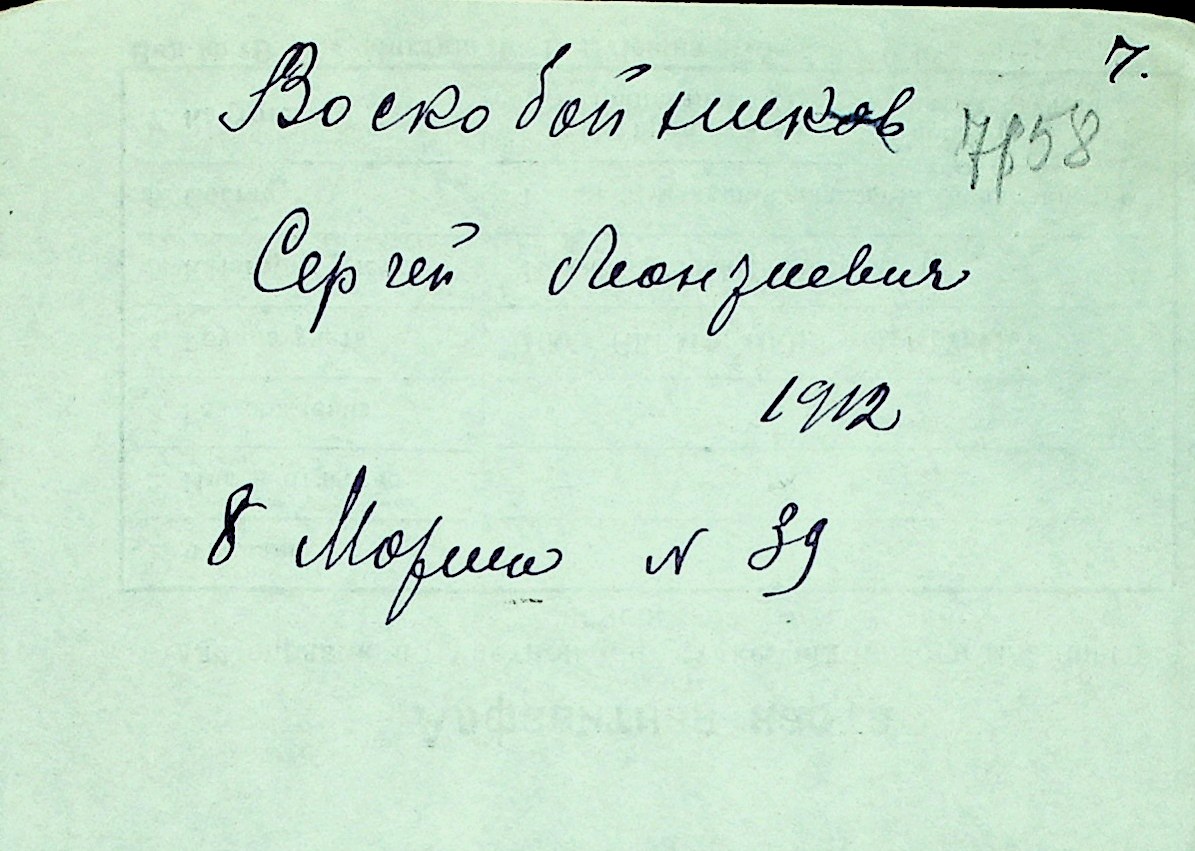 7.
Воскобойников
7858
Сергей Леонзиевич
1912
8 Марта N 39